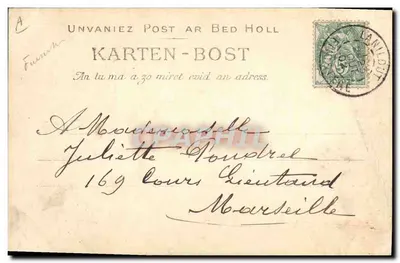 A
UNVANIEZ POST AR BED HOLL
KARTEN-BOST
An tu ma a zo miret evid an adress.
LANILDUT
A Mademoiselle
Juliette Poudrel
169 Cours Lieutaud
Marseille